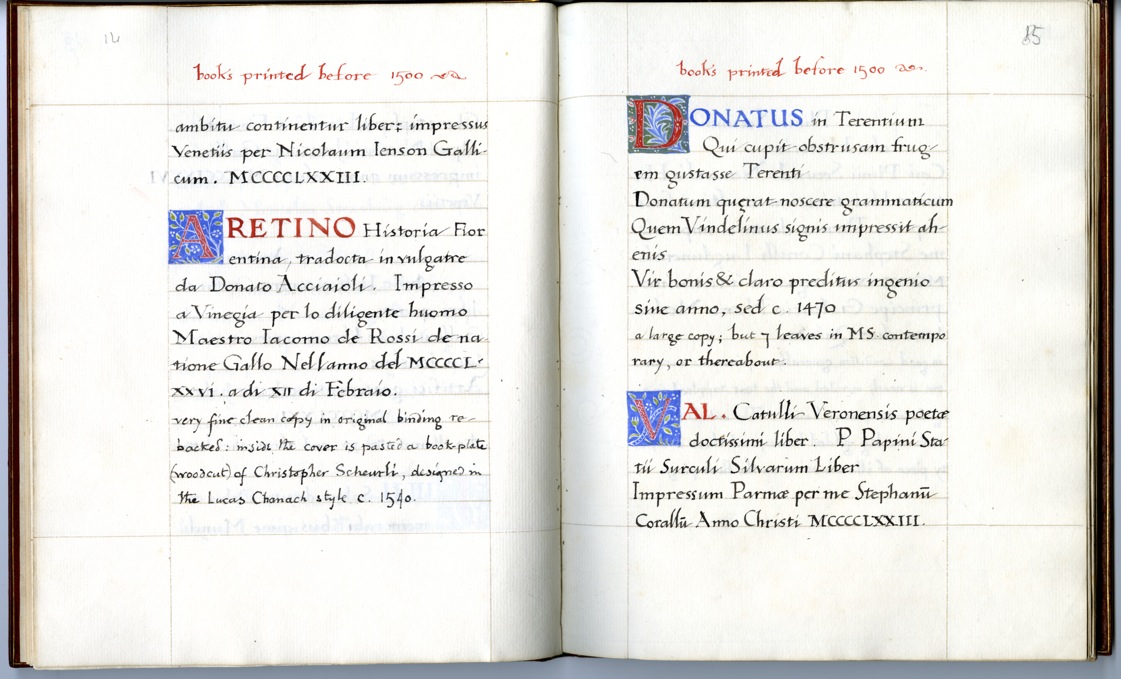 14
books printed before 1500
ambitu continentur liber: impressus
Venetiis per Nicolaum Ienson Galli-
cum. MCCCCLXXIII.
ARETINO Historia Fior
entina, tradocta in vulgatre
da Donato Acciaioli. Impresso
a Vinegia per lo diligente huomo
Maestro Iacomo de Rossi de na
tione Gallo Nell anno del MCCCCL-
XXVI. a di XII di Febraio.
very fine clean copy in original binding re-
backed: inside the cover is pasted a book-plate
(woodcut) of Christopher Scheurli, designed in
the Lucas Chanach style c. 1540.
15
books printed before 1500
DONATUS in Terentium
Qui cupit obstrusam frug-
em gustasse Terenti
Donatum quęrat noscere grammaticum
Quem Vindelinus signis impressit ah-
enis
Vir bonis & claro preditus ingenio
sine anno, sed c. 1470
a large copy; but 7 leaves in MS. contempo
rary, or thereabout.
VAL. Catulli Veronensis poetæ
doctissimi liber. P. Papini Sta-
tii Surculi Silvarum Liber
Impressum Parmæ per me Stephanū
Corallū Anno Christi MCCCCLXXIII.